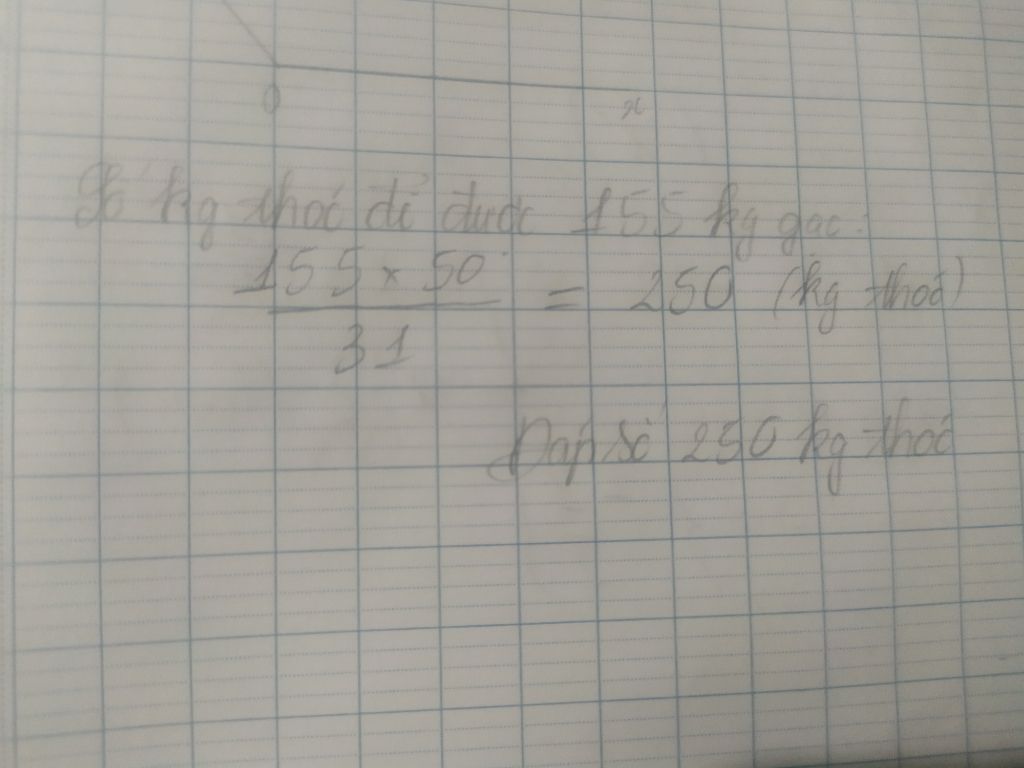 0
x
Số kg thóc để được 155 kg gạo:
155 x 50
= 250 (kg thóc)
31
Đáp số 250 kg thóc